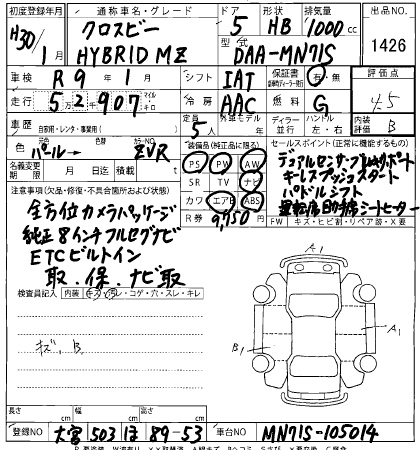 初度登録年月 通称車名・グレード ドア 形状 排気量 出品NO.
H30/1月 クロスビー HYBRID MZ 5 HB 1000cc 1426
型式 DAA-MN71S
車検 R9年1月 シフト IAT 保証書 有・無 評価点 4.5
走行 52,907 マイル キロ 冷房 AAC 燃料 G 内装 B
車歴 自家用・レンタ・事業用( ) 定員 5人 外車モデル 年 ディーラー 並行 ハンドル 左・右
色 パール→ 色替 カラーNO. ZVR
名義変更期限 月 日 積載量 t
装備品(純正品に限る)
PS PW AW
SR TV ナビ
カワ エアB ABS
R券 9,750
セールスポイント(正常に機能するもの)
デュアルセンサーブレーキサポート
キーレスプッシュスタート
パドルシフト
運転席助手席シートヒーター
FW キズ・ヒビ割・リペア跡・X要
注意事項(欠品・修復・不具合箇所および状態)
全方位カメラパッケージ
純正8インチフルセグナビ
ETCビルトイン
取.保.ナビ取
検査員記入 内装 キズ・汚レ・コゲ・穴・スレ・キレ
キズ, B.
A1
B1
A1
長さ cm 幅 cm 高さ cm
登録NO 大宮 503 ほ 89-53 車台NO MN71S-105014